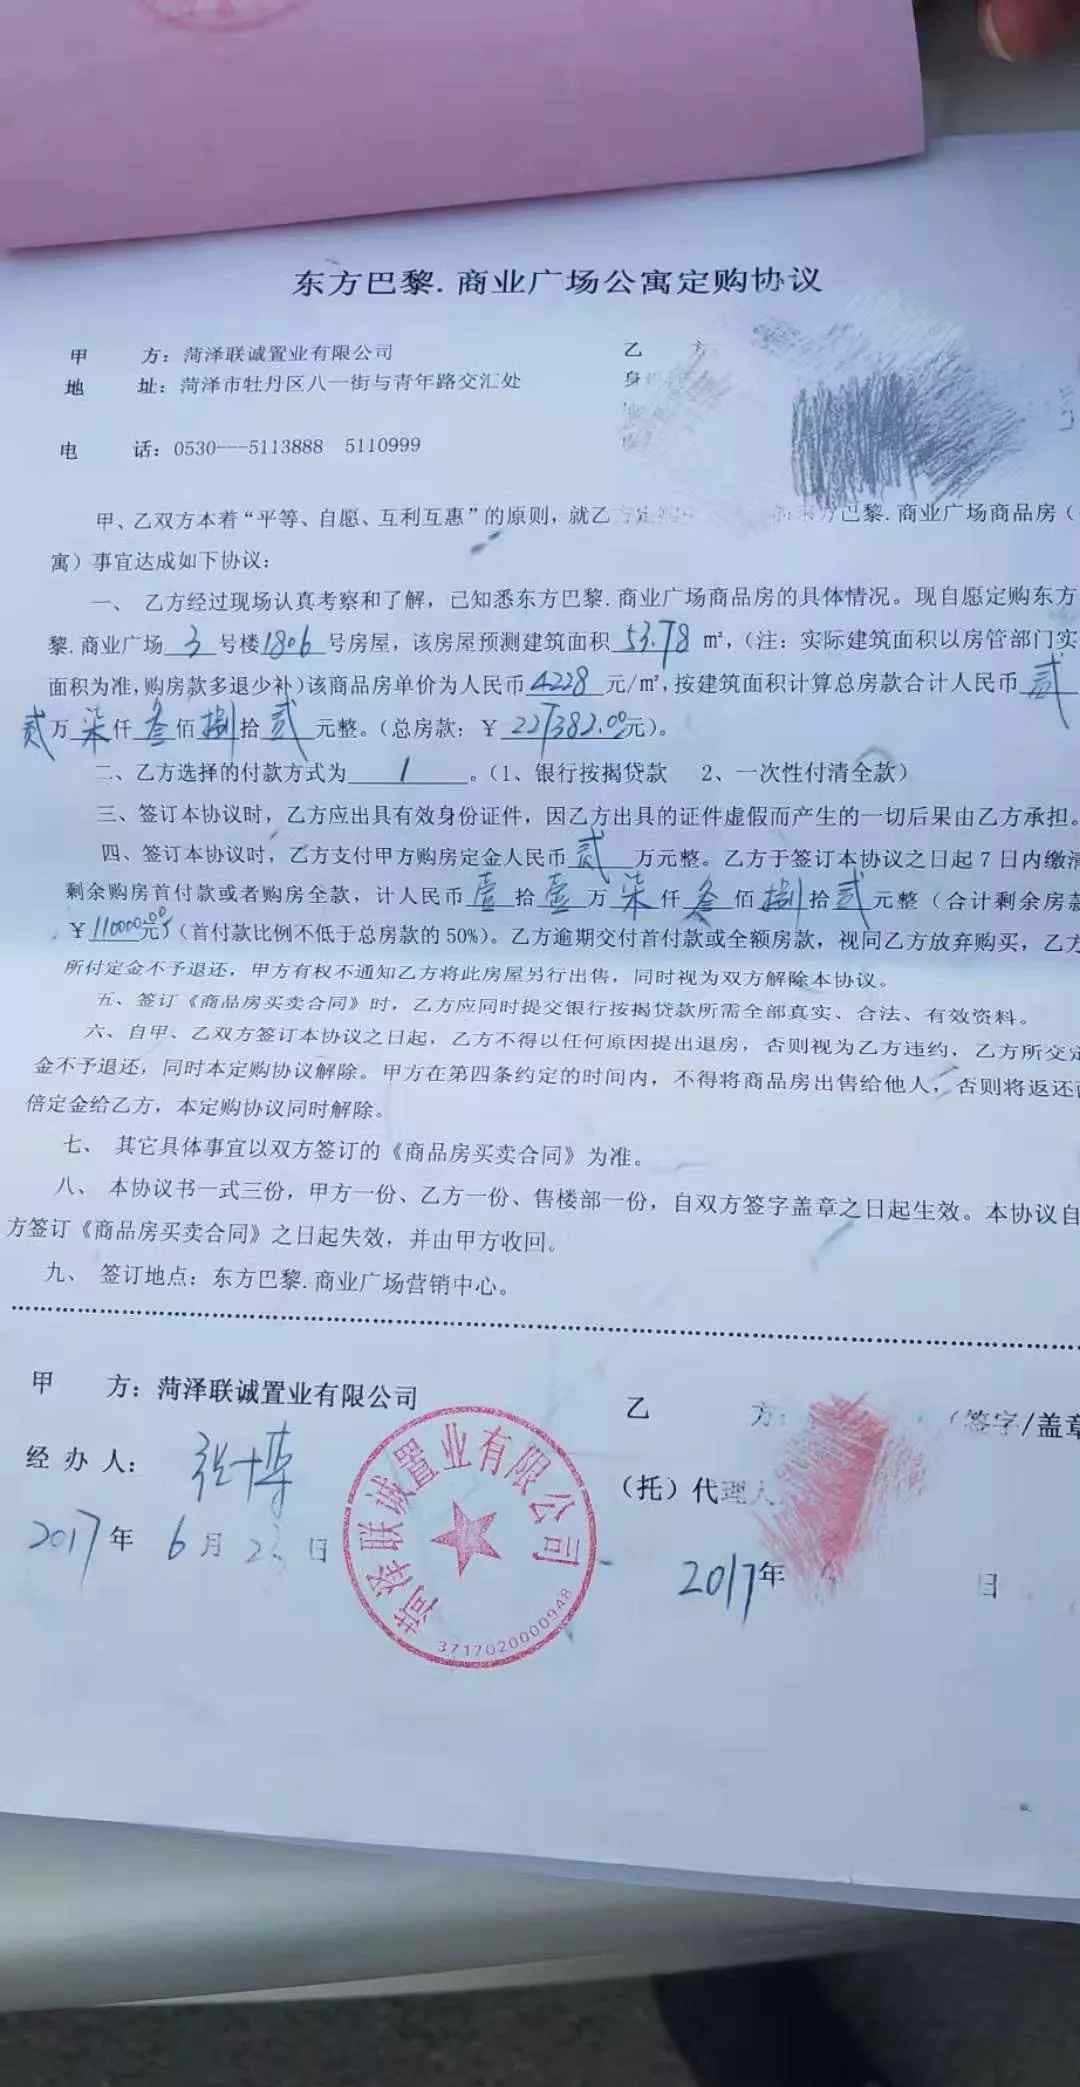 东方巴黎.商业广场公寓定购协议
甲 方：菏泽联诚置业有限公司 乙 方：
地 址：菏泽市牡丹区八一街与青年路交汇处 身
电 话：0530---5113888 5110999
甲、乙双方本着“平等、自愿、互利互惠”的原则，就乙方定购 巴黎.商业广场商品房（
寓）事宜达成如下协议：
一、 乙方经过现场认真考察和了解，已知悉东方巴黎.商业广场商品房的具体情况。现自愿定购东方
黎.商业广场 3 号楼1806号房屋，该房屋预测建筑面积 53.78 ㎡，（注：实际建筑面积以房管部门实
面积为准，购房款多退少补）该商品房单价为人民币 4228 元/㎡，按建筑面积计算总房款合计人民币 贰
贰万柒仟叁佰捌拾贰元整。（总房款：￥227382.00元）。
二、乙方选择的付款方式为 1 。（1、银行按揭贷款 2、一次性付清全款）
三、签订本协议时，乙方应出具有效身份证件，因乙方出具的证件虚假而产生的一切后果由乙方承担。
四、签订本协议时，乙方支付甲方购房定金人民币 贰 万元整。乙方于签订本协议之日起 7 日内缴清
剩余购房首付款或者购房全款，计人民币壹拾壹万柒仟叁佰捌拾贰元整（合计剩余房款
￥110000.00元（首付款比例不低于总房款的 50%）。乙方逾期交付首付款或全额房款，视同乙方放弃购买，乙方
所付定金不予退还，甲方有权不通知乙方将此房屋另行出售，同时视为双方解除本协议。
五、签订《商品房买卖合同》时，乙方应同时提交银行按揭贷款所需全部真实、合法、有效资料。
六、自甲、乙双方签订本协议之日起，乙方不得以任何原因提出退房，否则视为乙方违约，乙方所交定
金不予退还，同时本定购协议解除。甲方在第四条约定的时间内，不得将商品房出售给他人，否则将返还
倍定金给乙方，本定购协议同时解除。
七、 其它具体事宜以双方签订的《商品房买卖合同》为准。
八、 本协议书一式三份，甲方一份、乙方一份、售楼部一份，自双方签字盖章之日起生效。本协议自
方签订《商品房买卖合同》之日起失效，并由甲方收回。
九、 签订地点：东方巴黎.商业广场营销中心。
甲 方：菏泽联诚置业有限公司
乙 方： （签字/盖章
经 办 人：
（托）代理人
2017年 6月 23日
2017年 日
菏泽联诚置业有限公司
3717020000948